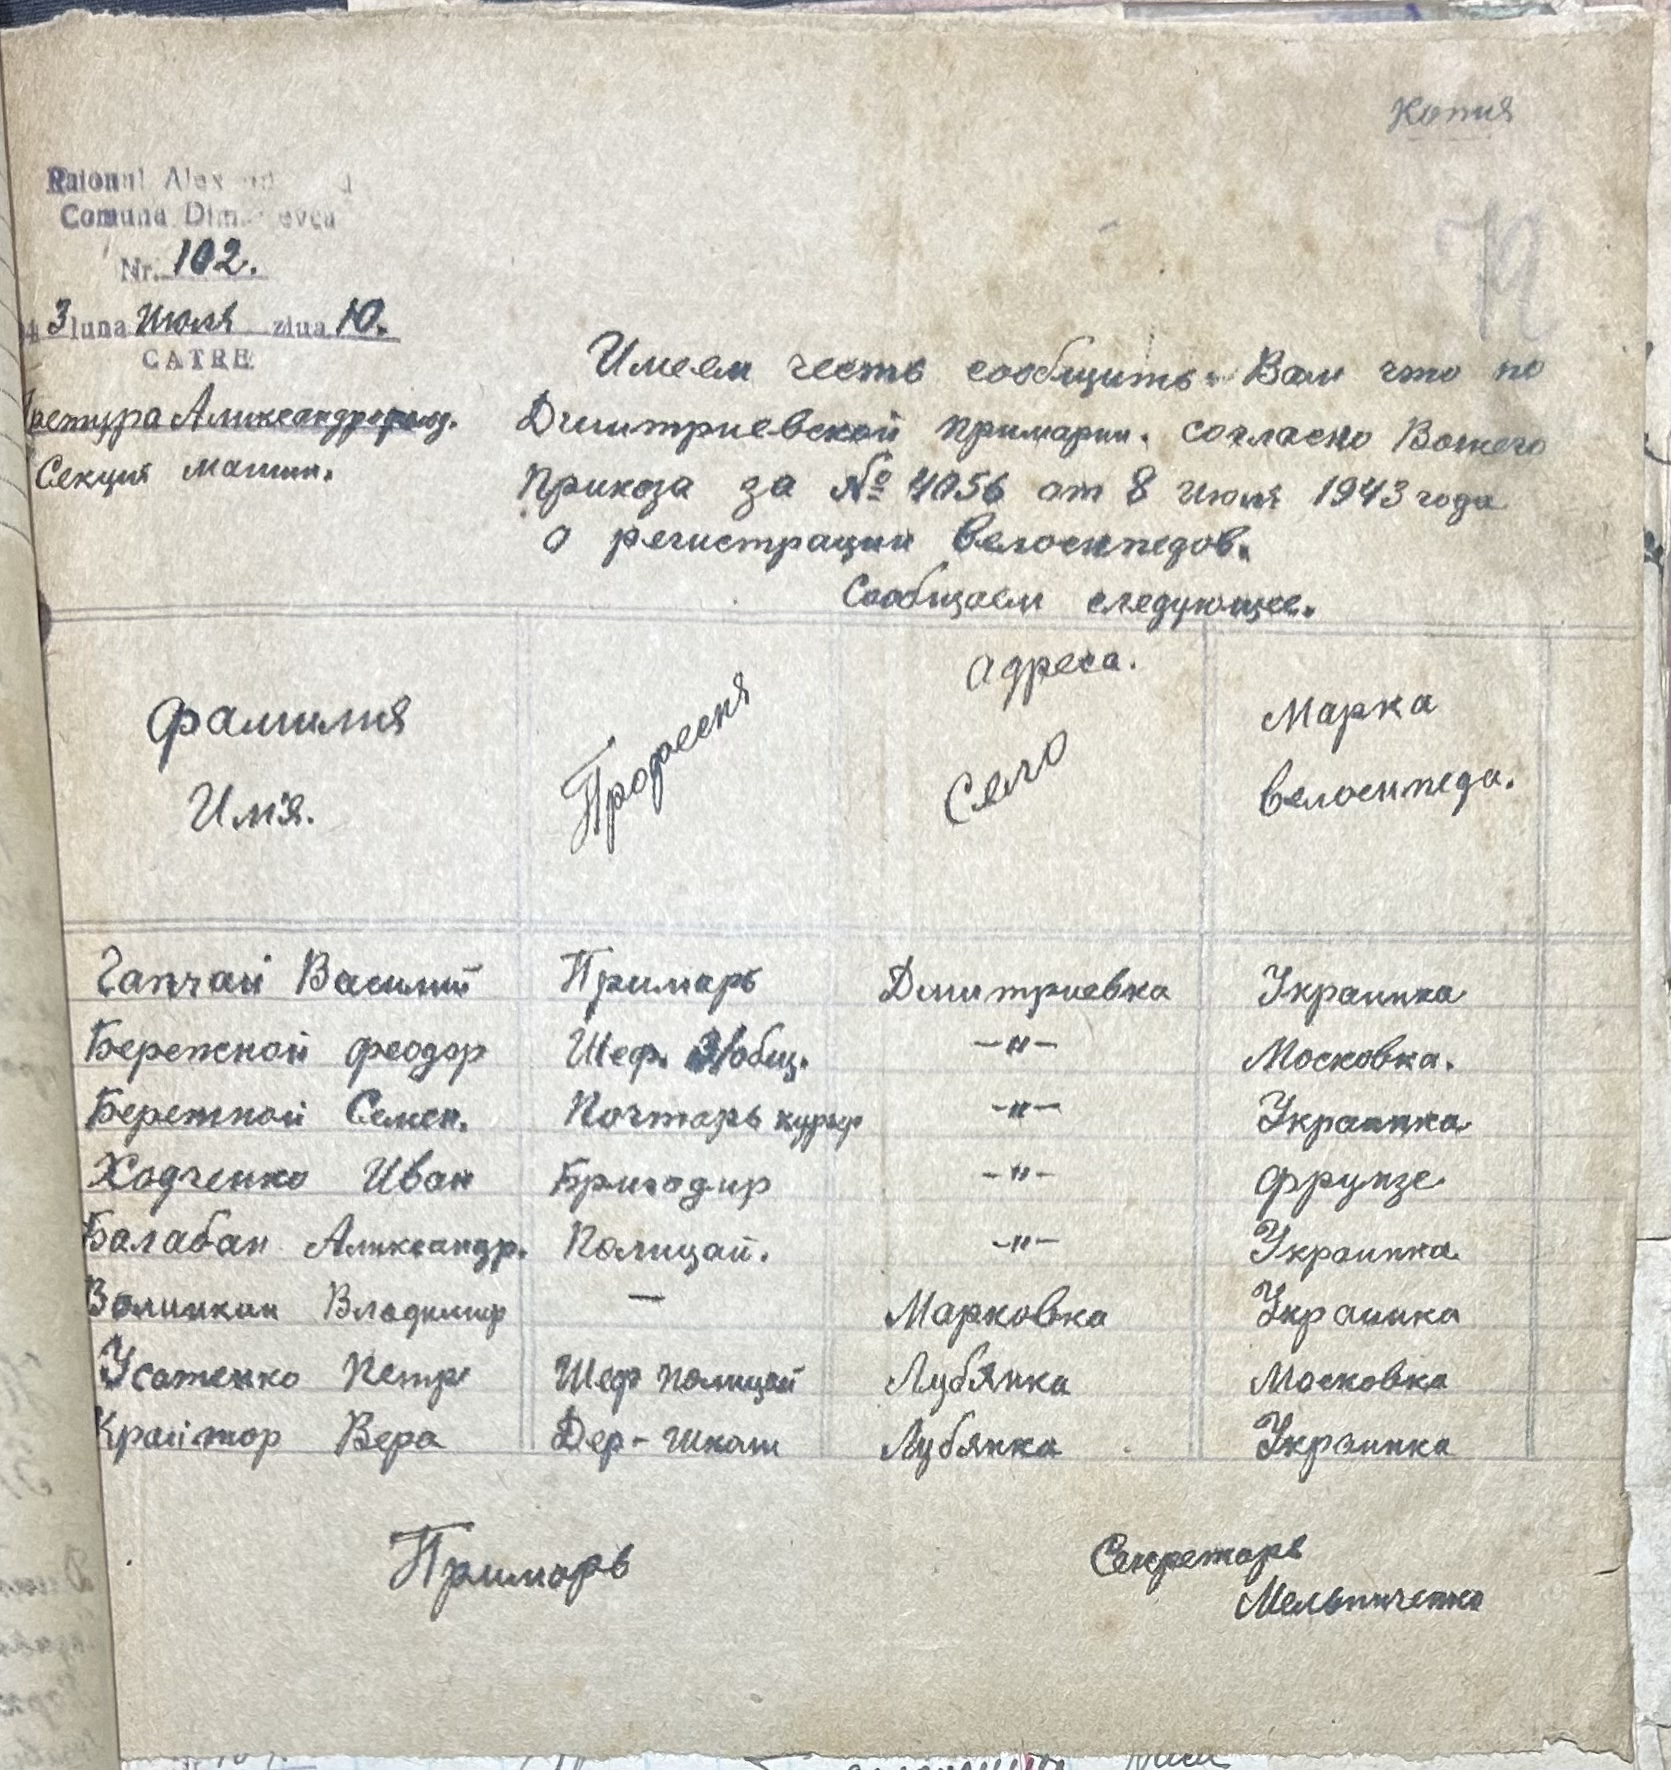 Копия
Raionul Alex
Comuna Dim evca
Nr. 102.
3 luna Июля ziua 10.
CATRE
Претура Александрфельд.
Секция машин.
Имеем честь сообщить Вам что по
Дмитриевской примарии. согласно Вашего
Приказа за № 4056 от 8 июля 1943 года
о регистрации велосипедов.
Сообщаем следующее.
Фамилия Имя. Професия Адреса. Село Марка велосипеда.
Гапчай Василий Примарь Дмитриевка Украинка
Бережной Феодор Шеф. общ. —"— Московка.
Бережной Семен. Почтарь курьер —"— Украинка
Ходченко Иван Бригадир —"— Фрунзе
Балабан Александр. Полицай. —"— Украинка
Волинкин Владимир — Марковка Украинка
Усатенко Петр Шеф полицай Лубянка Московка
Крайтор Вера Дер-школи Лубянка Украинка
Примарь
Секретарь
Мельниченко